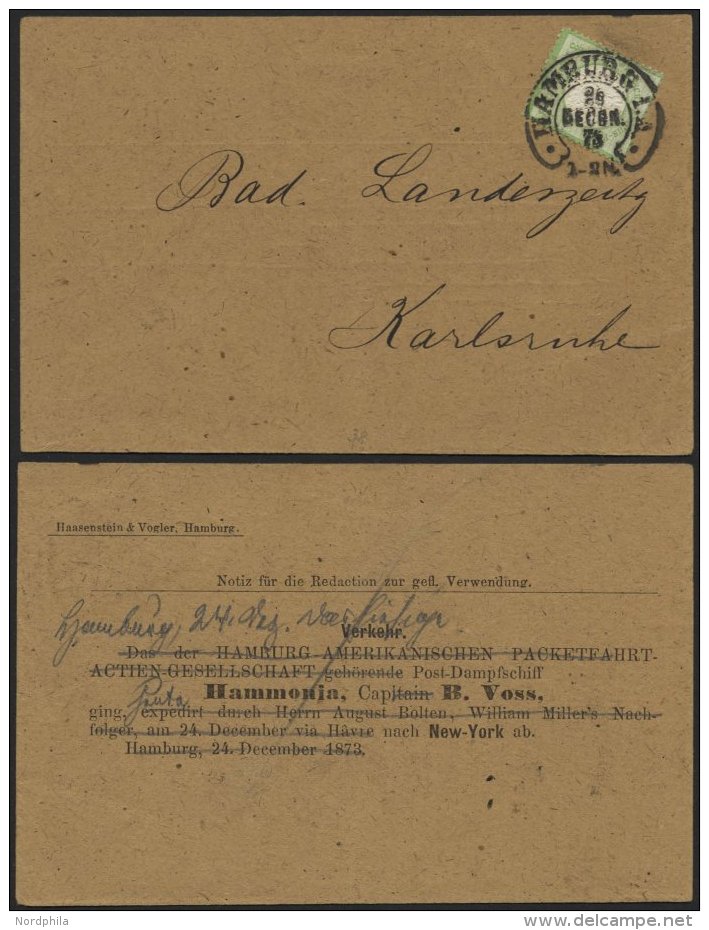 HAMBURG I.A.
DECBR.
75
1-2N.
Bad. Landeszeitg
Karlsruhe
Haasenstein & Vogler, Hamburg.
Notiz für die Redaction zur gefl. Verwendung.
Hamburg, 24. Dez. Das hiesige
Verkehr.
Das der HAMBURG-AMERIKANISCHEN PACKETFAHRT-
ACTIEN-GESELLSCHAFT gehörende Post-Dampfschiff
Hammonia, Capitain B. Voss,
heute
ging, expedirt durch Herrn August Bolten, William Miller's Nach-
folger, am 24. December via Hâvre nach New-York ab.
Hamburg, 24. December 1873.
Nordphila
www.delcampe.net